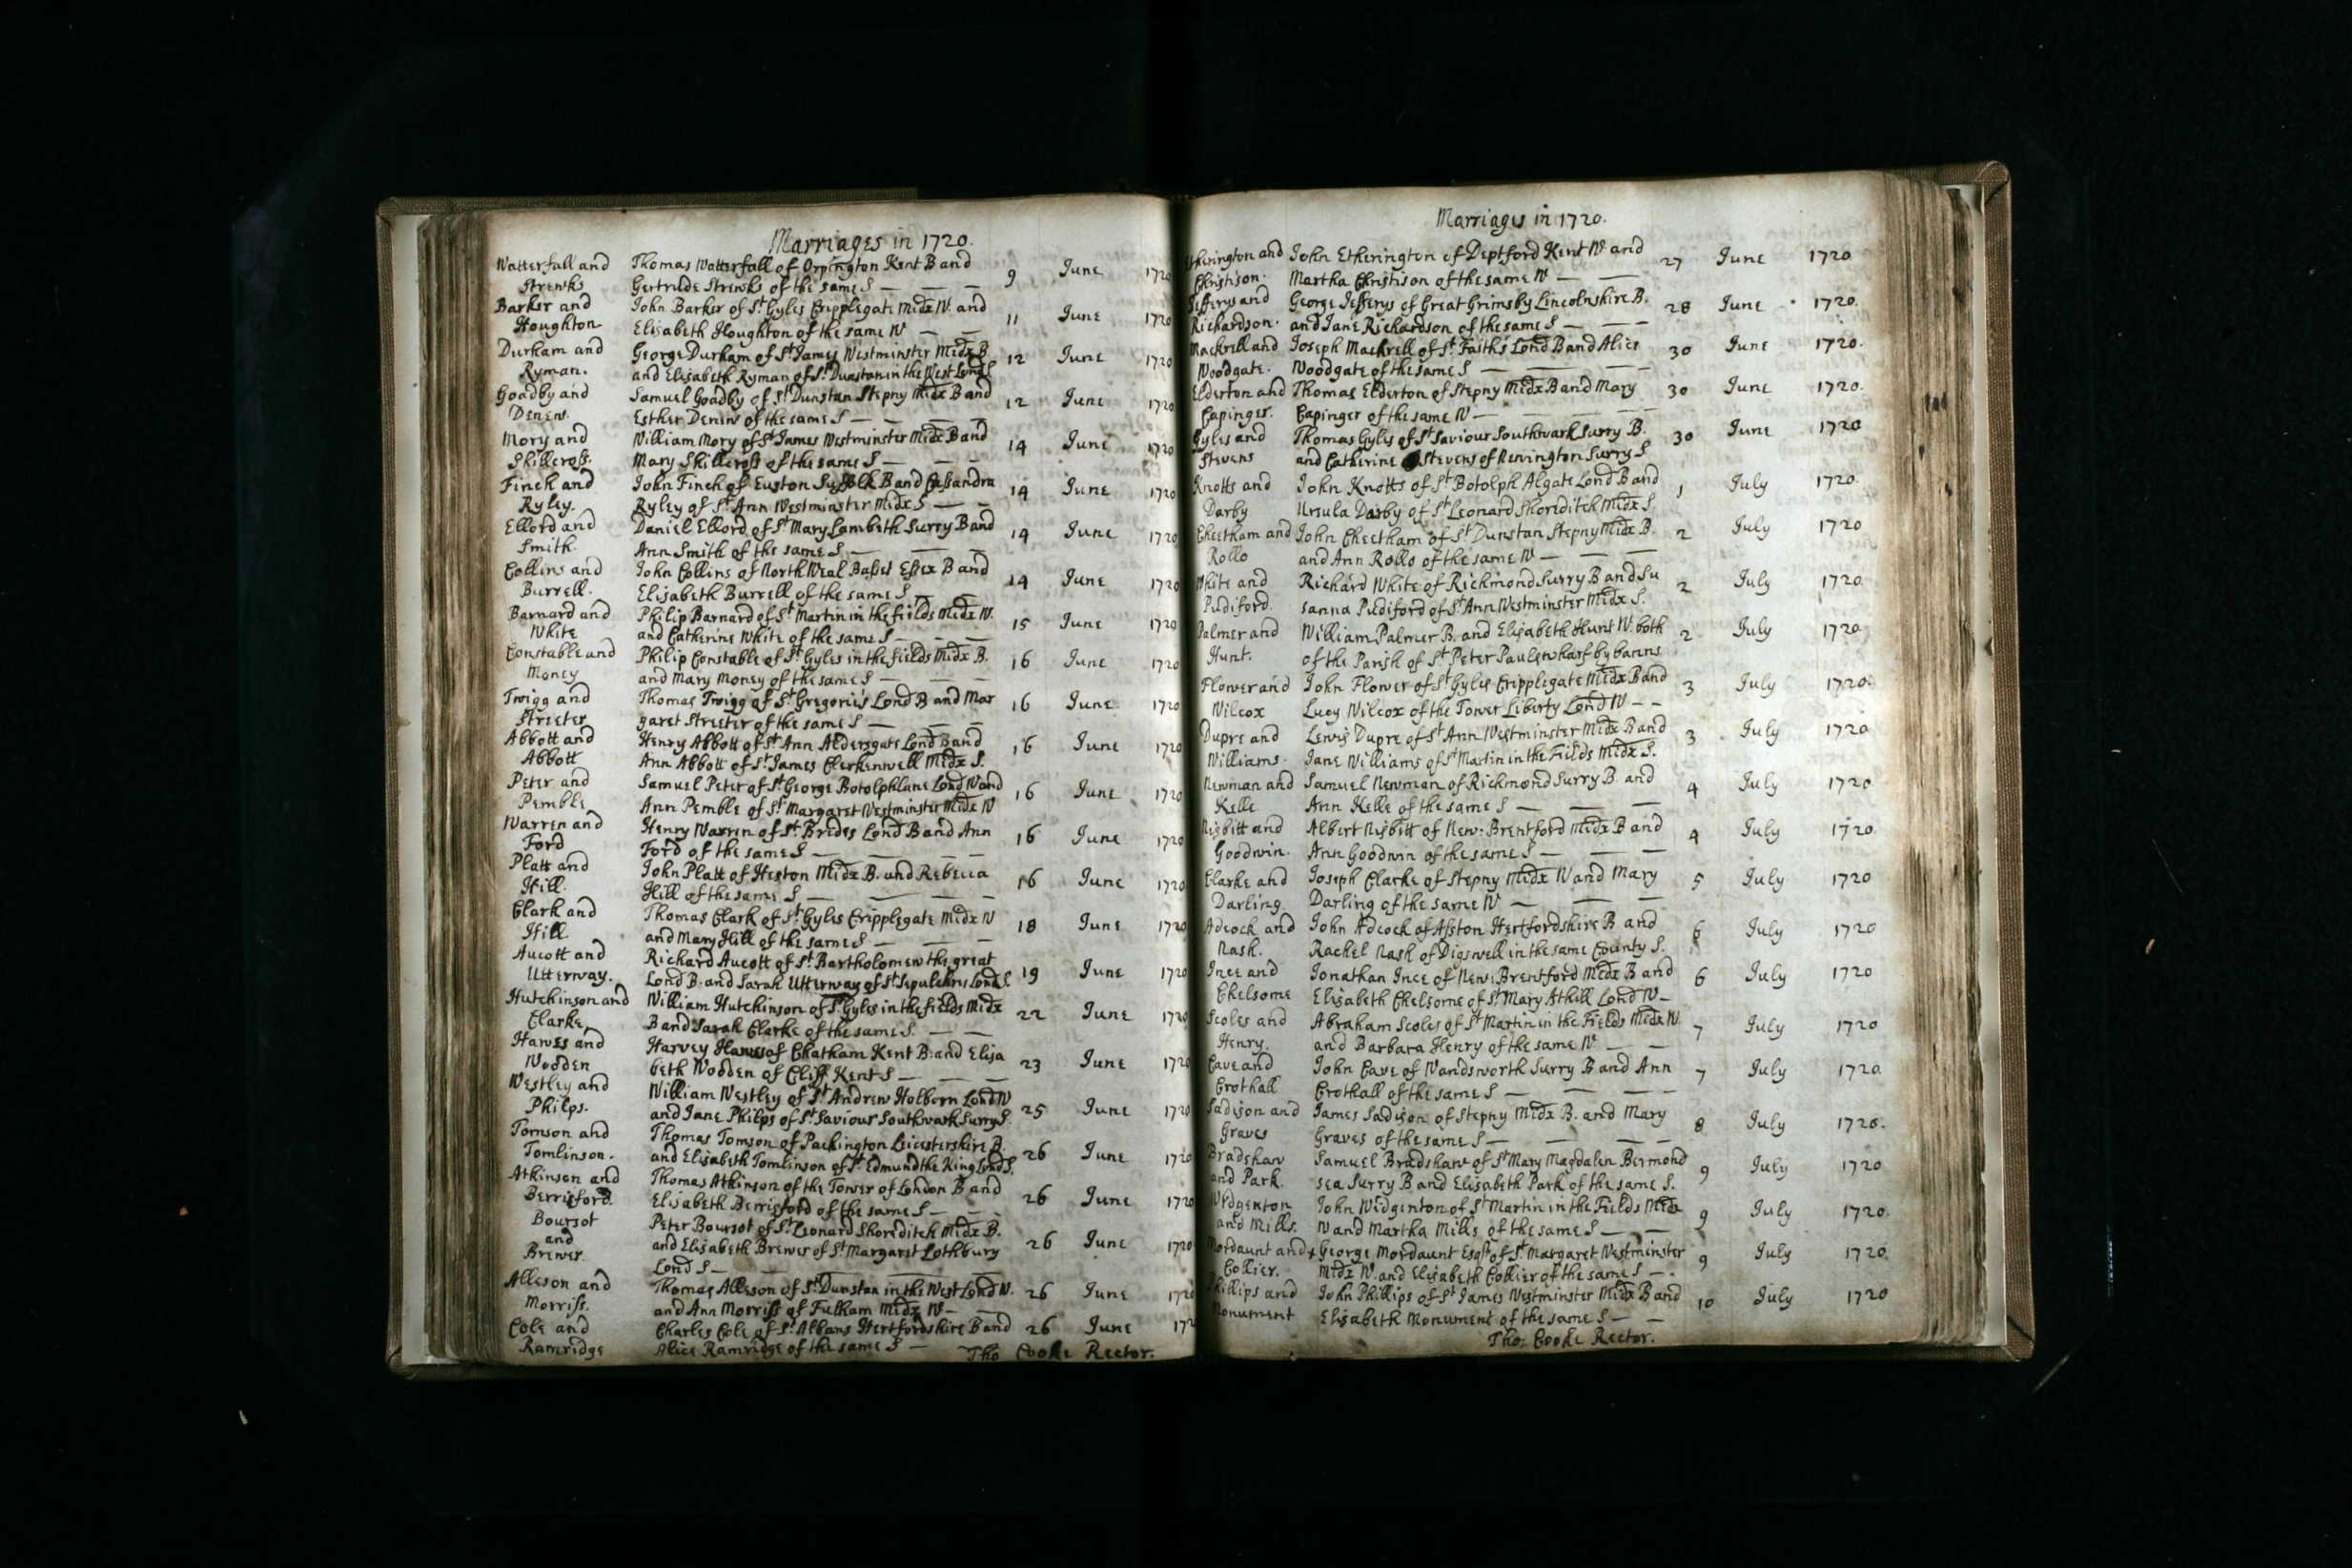 Marriages in 1720.
Watterfall and Thomas Watterfall of Orpington Kent B and 9 June 1720
Strenks Gertrude Strenks of the same S
Barker and John Barker of St Gyles Cripplegate Midx W. and 11 June 1720
Houghton Elisabeth Houghton of the same W
Durham and George Durham of St James Westminster Midx B 12 June 1720
Ryman. and Elisabeth Ryman of St Dunstan in the West Lond S
Goadby and Samuel Goadby of St Dunstan Stepny Midx B and 12 June 1720
Denew. Esther Denew of the same S
Mory and William Mory of St James Westminster Midx B and 14 June 1720
Skillcross. Mary Skillcross of the same S
Finch and John Finch of Euston Suffolk B and Cassandra 14 June 1720
Ryley. Ryley of St Ann Westminster Midx S
Ellord and Daniel Ellord of St Mary Lambeth Surry B and 14 June 1720
Smith. Ann Smith of the same S
Collins and John Collins of North Weal Basset Essex B and 14 June 1720
Burrell. Elisabeth Burrell of the same S
Barnard and Philip Barnard of St Martin in the fields Midx W. 15 June 1720
White and Catherine White of the same S
Constable and Philip Constable of St Gyles in the fields Midx B. 16 June 1720
Money and Mary Money of the same S
Twigg and Thomas Twigg of St Gregories Lond B and Mar 16 June 1720
Streeter garet Streeter of the same S
Abbott and Henry Abbott of St Ann Aldersgate Lond B and 16 June 1720
Abbott Ann Abbott of St James Clerkenwell Midx S.
Peter and Samuel Peter of St George Botolphlane Lond W and 16 June 1720
Pemble Ann Pemble of St Margaret Westminster Midx W
Warren and Henry Warren of St Brides Lond B and Ann 16 June 1720
Ford Ford of the same S
Platt and John Platt of Heston Midx B. and Rebecca 16 June 1720
Hill. Hill of the same S
Clark and Thomas Clark of St Gyles Cripplegate Midx W 18 June 1720
Hill. and Mary Hill of the same S
Aucott and Richard Aucott of St Bartholomew the great 19 June 1720
Utterway. Lond B. and Sarah Utterway of St Sepulchres Lond S.
Hutchinson and William Hutchinson of St Gyles in the fields Midx 22 June 1720
Clarke B and Sarah Clarke of the same S.
Hawes and Harvey Hawes of Chatham Kent B. and Elisa 23 June 1720
Wodden beth Wodden of Cliff Kent S
Westley and William Westley of St Andrew Holborn Lond W 25 June 1720
Philps. and Jane Philps of St Saviour Southwark Surry S.
Tomson and Thomas Tomson of Packington Leicestershire B. 26 June 1720
Tomlinson. and Elisabeth Tomlinson of St Edmund the King Lond S.
Atkinson and Thomas Atkinson of the Tower of London B and 26 June 1720
Berrisford. Elisabeth Berrisford of the same S
Boursot Peter Boursot of St Leonard Shoreditch Midx B.
and and Elisabeth Brewer of St Margaret Lothbury 26 June 1720
Brewer. Lond S
Alleson and Thomas Alleson of St Dunstan in the West Lond W. 26 June 1720
Morriss. and Ann Morriss of Fulham Midx W
Cole and Charles Cole of St Albans Hertfordshire B and 26 June 172
Ramridge Alice Ramridge of the same S
Tho Cooke Rector.
Marriages in 1720.
therington and John Etherington of Deptford Kent W and 27 June 1720
Christison. Martha Christison of the same W
Jefferys and George Jefferys of Great Grimsby Lincolnshire B. 28 June 1720.
Richardson. and Jane Richardson of the same S
Mackrell and Joseph Mackrell of St Faiths Lond B and Alice 30 June 1720.
Woodgate. Woodgate of the same S
Elderton and Thomas Elderton of Stepny Midx B and Mary 30 June 1720.
Capinger. Capinger of the same W
Gyles and Thomas Gyles of St Saviour Southwark Surry B. 30 June 1720
Stevens and Catherine Stevens of Newington Surry S
Knotts and John Knotts of St Botolph Algate Lond B and 1 July 1720.
Darby Ursula Darby of St Leonard Shoreditch Midx S.
Cheetham and John Cheetham of St Dunstan Stepny Midx B. 2 July 1720
Rollo and Ann Rollo of the same W
White and Richard White of Richmond Surry B and Su 2 July 1720
Pudiford. sanna Pudiford of St Ann Westminster Midx S.
Palmer and William Palmer B. and Elisabeth Hunt W. both 2 July 1720
Hunt. of the Parish of St Peter Paulswharf by banns
Flower and John Flower of St Gyles Cripplegate Midx B and 3 July 1720.
Wilcox Lucy Wilcox of the Tower Liberty Lond W
Dupre and Lewis Dupre of St Ann Westminster Midx B and 3 July 1720
Williams. Jane Williams of St Martin in the Fields Midx S.
Newman and Samuel Newman of Richmond Surry B. and 4 July 1720
Kelle Ann Kelle of the same S
Nisbitt and Albert Nisbitt of New: Brentford Midx B and 4 July 1720.
Goodwin. Ann Goodwin of the same S
Clarke and Joseph Clarke of Stepny Midx W and Mary 5 July 1720
Darling. Darling of the same W
Adcock and John Adcock of Asston Hertfordshire B and 6 July 1720
Nash. Rachel Nash of Digswell in the same County S.
Ince and Jonathan Ince of New: Brentford Midx B and 6 July 1720
Chelsome Elisabeth Chelsome of St Mary Athill Lond W
Scoles and Abraham Scoles of St Martin in the Fields Midx W. 7 July 1720
Henry. and Barbara Henry of the same W.
Cave and John Cave of Wandsworth Surry B and Ann 7 July 1720
Crothall Crothall of the same S
Sadison and James Sadison of Stepny Midx B. and Mary 8 July 1720.
Graves Graves of the same S
Bradshaw Samuel Bradshaw of St Mary Magdalen Bermond 9 July 1720
and Park. sea Surry B and Elisabeth Park of the same S.
Widgenton John Widgenton of St Martin in the Fields Midx 9 July 1720.
and Mills. W and Martha Mills of the same S
Mordaunt and x George Mordaunt Esqr of St Margaret Westminster 9 July 1720.
Collier. Midx W. and Elisabeth Collier of the same S
Phillips and John Phillips of St James Westminster Midx B and 10 July 1720
Monument Elisabeth Monument of the same S
Tho: Cooke Rector.